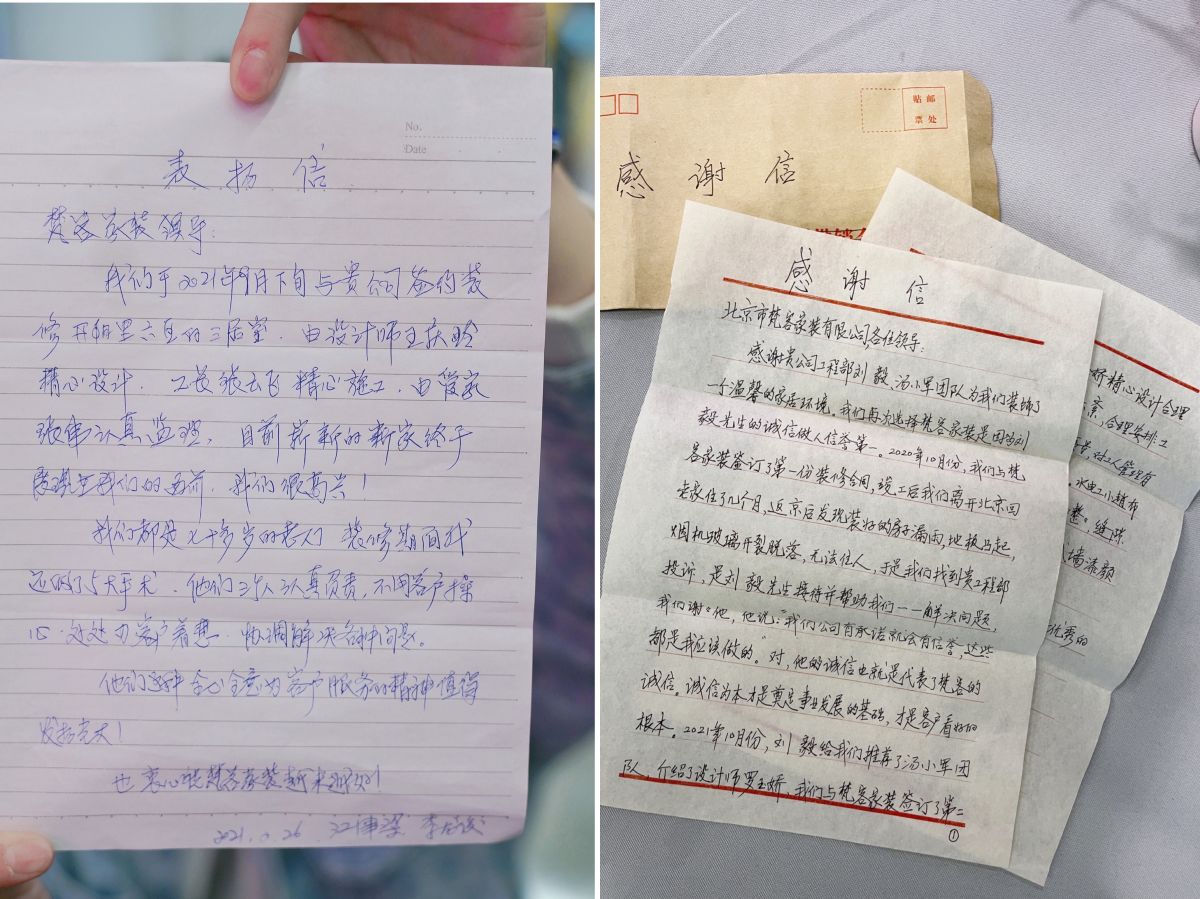 No.
Date
表扬信
梵客家装领导：
我们于2021年9月下旬与贵公司签约装
修开阳里六区的三居室．由设计师王庆玲
精心设计．工长张云飞精心施工．由管家
张伟认真监理．目前崭新的新家终于
展现在我们的面前．我们很高兴！
我们都是七十多岁的老人 装修期间我
还做了5大手术．他们三个人认真负责，不用客户操
心．处处为客户着想．协调解决各种问题。
他们这种全心全意为客户服务的精神值得
发扬光大！
也衷心祝梵客家装越来越好！
贴邮
票处
感谢信
感谢信
北京市梵客家装有限公司各位领导：
感谢贵公司工程部刘毅、汤小军团队为我们装饰了
一个温馨的家居环境。我们再次选择梵客家装是因为刘
毅先生的诚信做人信誉第一。2020年10月份，我们与梵
客家装签订了第一份装修合同，竣工后我们离开北京回
老家住了几个月，返京后发现装好的房子漏雨，地板凸起，
烟机玻璃开裂脱落，无法住人，于是我们找到贵工程部
投诉，是刘毅先生接待并帮助我们一一解决问题，
我们谢谢他，他说："我们公司有承诺就会有信誉，这些
都是我应该做的"。对，他的诚信也就是代表了梵客的
诚信。诚信为本才是奠定事业发展的基础，才是客户看好的
根本。2021年10月份，刘毅给我们推荐了汤小军团
队，介绍了设计师罗玉娇，我们与梵客家装签订了第二
①
娇精心设计合理
案，合理安排工
对工人管理有
水电工小赵布
整。缝隙
墙漆颜
优秀的